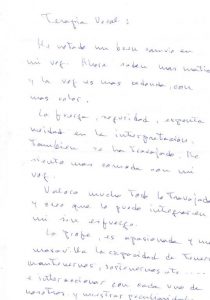 Terapia Vocal:
He notado un buen cambio en
mi voz. Ahora salen mas matices
y la voz es mas redonda, con
mas color.
La fuerza, seguridad, esponta
neidad en la interpretación.
Tambien se ha trabajado. Me
siento mas comoda con mi
voz.
Valoro mucho todo lo trabajado
y creo que lo puedo integrar en
mi sin esfuerzo.
La profe, es apasionada y un
. Me la capacidad de
mantenernos, sostenernos etc.....
e interaccionar con cada uno de
nosotros y nuestras peculiaridades